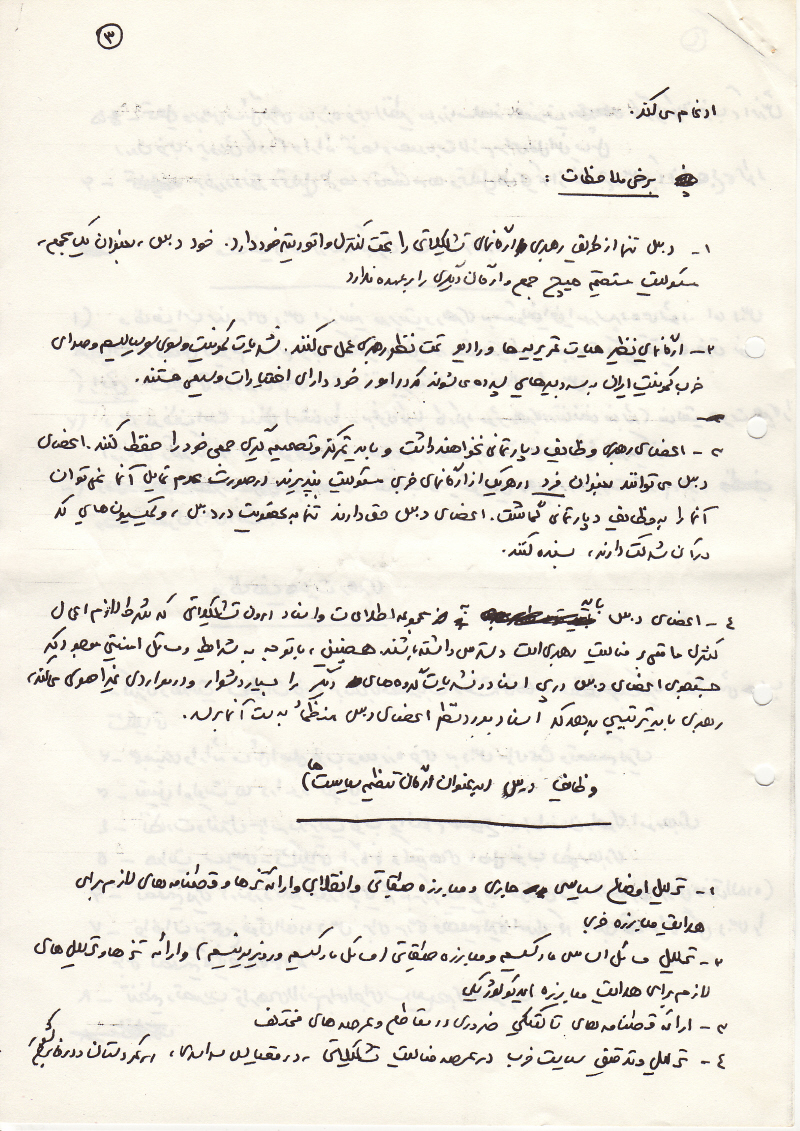 ۳
ادغام می کند.
برخی ملاحظات :
۱- د.س تنها از طریق رهبری ارگانهای تشکیلاتی را تحت کنترل و اتوریته خود دارد. خود د.س، بعنوان یک مجمع،
مسئولیت مستقیم هیچ جمع و ارگان دیگری را بر عهده ندارد
۲- ارگانهای نظیر هیات تحریریه ها و رادیو تحت نظر رهبری عمل می کنند. نشریات کمونیست و بسوی سوسیالیسم و صدای
حزب کمونیست ایران به سردبیرهایی سپرده می شوند که در امور خود دارای اختیارات وسیعی هستند.
۳- اعضای رهبری وظایف دپارتمانی نخواهند داشت و باید تمرکز و تصمیم گیری جمعی خود را حفظ کنند. اعضای
د.س می توانند بعنوان فرد در هریک از ارگانهای حزبی مسئولیت بپذیرند. در صورت عدم تمایل آنها نمی توان
آنها را به وظایف دپارتمانی گماشت. اعضای د.س حق دارند تنها به عضویت در د.س، و کمیسیون هایی که
در آن شرکت دارند، بسنده کنند.
۴- اعضای د.س باید به مجموعه اطلاعات و اسناد درون تشکیلاتی که شرط لازم اعمال
کنترل واقعی بر فعالیت رهبری است دسترسی داشته باشند. همچنین، با توجه به شرایط و مسائل امنیتی موجود که
جستجوی اعضای د.س در پی اسناد و نشریات گروه های دیگر را بسیار دشوار و در مواردی غیر اصولی می کند،
رهبری باید ترتیبی بدهد که اسناد مورد نظر اعضای د.س منظماً به دست آنها برسد.
وظایف د.س (به عنوان ارگان تنظیم سیاست ها)
۱- تحلیل اوضاع سیاسی جاری و مبارزه طبقاتی و انقلابی و ارائه تزها و قطعنامه های لازم برای
هدایت مبارزه حزب
۲- تحلیل مسائل اساسی مارکسیسم و مبارزه طبقاتی (مسائل مارکسیسم و رویزیونیسم) و ارائه تزها و تحلیل های
لازم برای هدایت مبارزه ایدئولوژیکی
۳- ارائه قطعنامه های تاکتیکی ضروری در مقاطع و عرصه های مختلف
۴- تحلیل و تدقیق سیاست حزب در عرصه فعالیت تشکیلاتی، در مقیاس سراسری، در کردستان و در خارج کشور